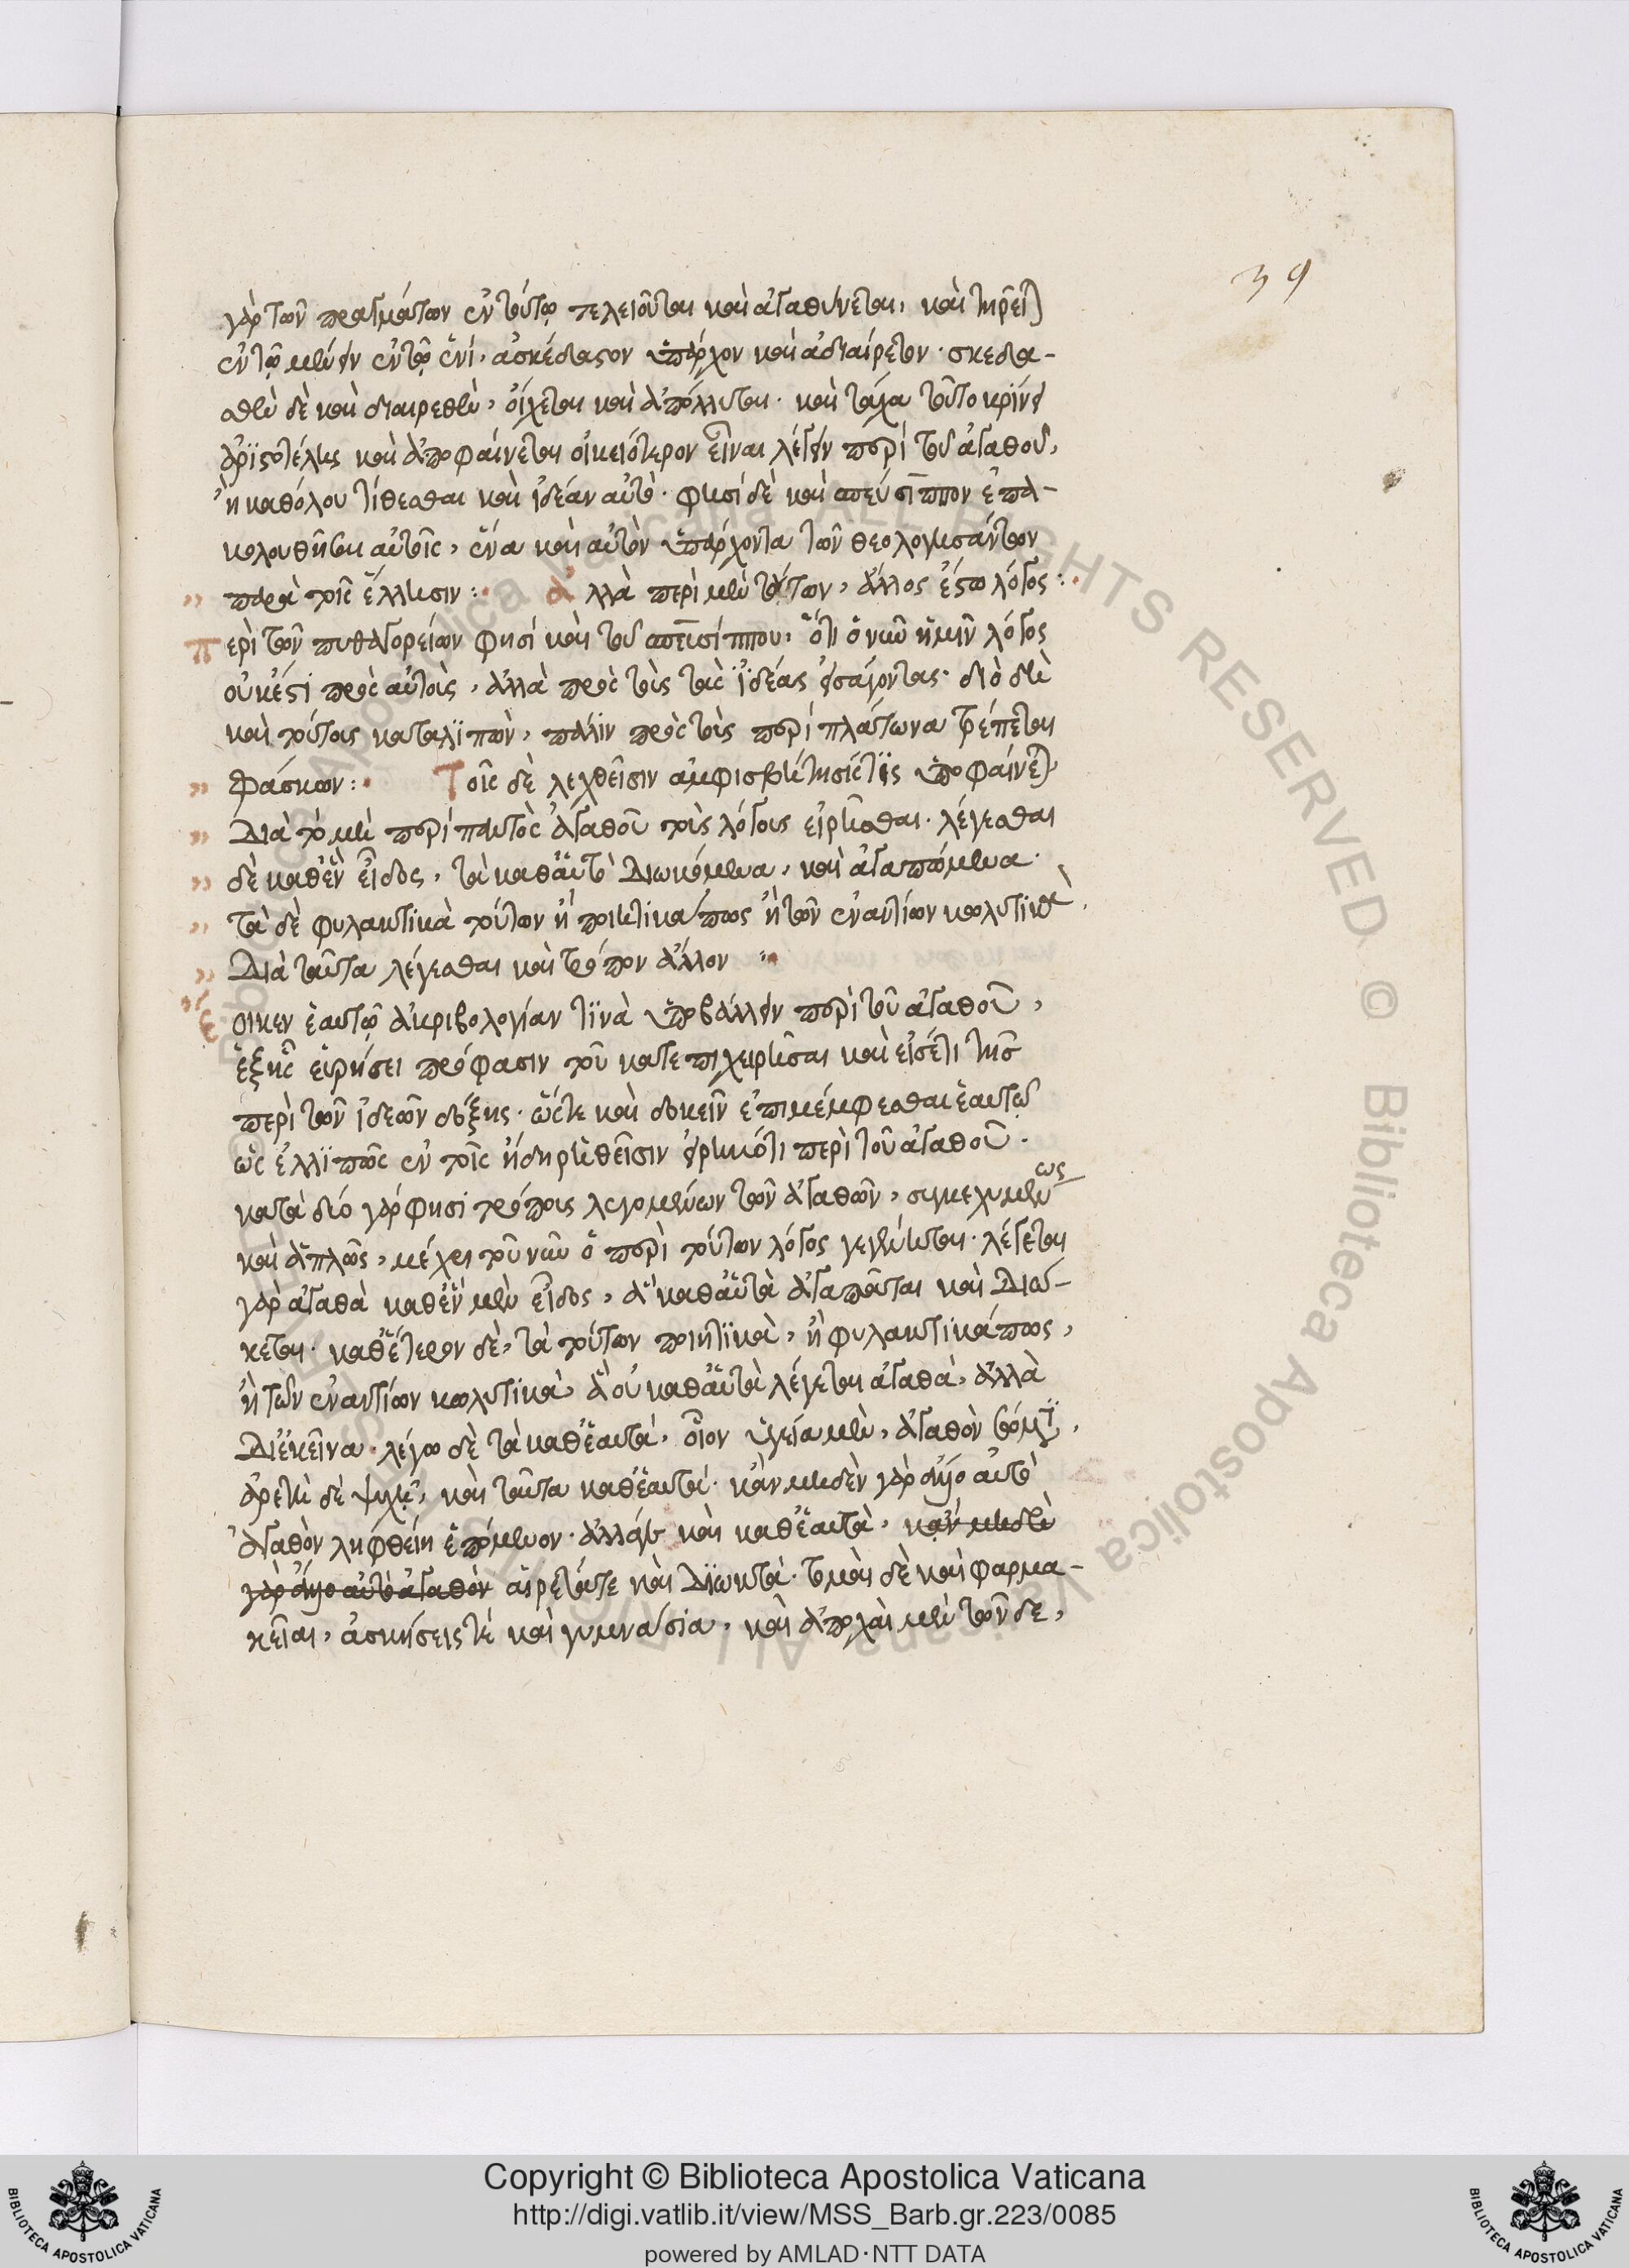 39
γὰρ τῶν πραγμάτων ἐν τούτῳ τελειοῦται καὶ ἀγαθύνεται, καὶ τηρεῖται
ἐν τῷ μένειν ἐν τῷ ἑνί, ἀσκέδαστον ὑπάρχον καὶ ἀδιαίρετον· σκεδα-
σθὲν δὲ καὶ διαιρεθὲν, οἴχεται καὶ ἀπόλλυται· καὶ τάχα τοῦτο κρίνει
ἀριστοτέλης καὶ ἀποφαίνεται οἰκειότερον εἶναι λέγειν περὶ τοῦ ἀγαθοῦ,
ἢ καθόλου τίθεσθαι καὶ ἰδέαν αὐτό· φησὶ δὲ καὶ σπεύσιππον ἐπα-
κολουθῆσαι αὐτοῖς, ἕνα καὶ αὐτὸν ὑπάρχοντα τῶν θεολογησάντων
παρὰ τοῖς ἕλλησιν: ἀλλὰ περὶ μὲν τούτων, ἄλλος ἔστω λόγος:
περὶ τῶν πυθαγορείων φησὶ καὶ τοῦ σπευσίππου, ὅτι ὁ νῦν ἡμῖν λόγος
οὐκ ἔστι πρὸς αὐτοὺς, ἀλλὰ πρὸς τοὺς τὰς ἰδέας εἰσάγοντας· διὸ δὴ
καὶ τούτους καταλιπὼν, πάλιν πρὸς τοὺς περὶ πλάτωνα τρέπεται
φάσκων: Τοῖς δὲ λεχθεῖσιν ἀμφισβήτησίς τις ὑποφαίνεται
Διὰ τὸ μὴ περὶ παντὸς ἀγαθοῦ τοὺς λόγους εἰρῆσθαι· λέγεσθαι
δὲ καθ' ἓν εἶδος, τὰ καθ' αὑτὰ Διωκόμενα, καὶ ἀγαπώμενα·
τὰ δὲ φυλακτικὰ τούτων ἢ ποιητικά πως ἢ τῶν ἐναντίων κωλυτικὰ,
Διὰ ταῦτα λέγεσθαι καὶ τρόπον ἄλλον
ἔοικεν ἑαυτῷ ἀκριβολογίαν τινὰ ὑποβάλλειν περὶ τοῦ ἀγαθοῦ,
ἑξῆς εὑρήσει πρόφασιν τοῦ κατεπιχειρῆσαι καὶ εἰσέτι τῆς
περὶ τῶν ἰδεῶν δόξης· ὥστε καὶ δοκεῖν ἐπιμέμφεσθαι ἑαυτῷ
ὡς ἐλλιπῶς ἐν τοῖς ἤδη ῥηθεῖσιν εἰρηκότι περὶ τοῦ ἀγαθοῦ·
κατὰ δύο γάρ φησι τρόπους λεγομένων τῶν ἀγαθῶν, συγκεχυμένως
καὶ ἁπλῶς, μέχρι τοῦ νῦν ὁ περὶ τούτων λόγος γεγένηται· λέγεται
γὰρ ἀγαθὰ καθ' ἓν μὲν εἶδος, ἃ καθ' αὑτὰ ἀγαπᾶται καὶ Διώ-
κεται· καθ' ἕτερον δὲ, τὰ τούτων ποιητικὰ, ἢ φυλακτικά πως,
ἢ τῶν ἐναντίων κωλυτικὰ, ἃ οὐ καθ' αὑτὰ λέγεται ἀγαθὰ, ἀλλὰ
Δι' ἐκεῖνα· λέγω δὲ τὰ καθ' ἑαυτά, οἷον ὑγεία μὲν, ἀγαθὸν σώματι,
ἀρετὴ δὲ ψυχῇ, καὶ ταῦτα καθ' ἑαυτά· κἂν μηδὲν γὰρ ἄλλο αὐτὸ
ἀγαθὸν ληφθείη ἑπόμενον· ἀλλά γε καὶ καθ' ἑαυτὰ, κἂν μηδὲν
γὰρ ἄλλο αὐτὸ ἀγαθὸν αἱρετά τε καὶ Διωκτά· τομαὶ δὲ καὶ φαρμα-
κεῖαι, ἀσκήσεις τὲ καὶ γυμνάσια, καὶ ἀποχαὶ μὲν τῶν δε,
Copyright © Biblioteca Apostolica Vaticana
http://digi.vatlib.it/view/MSS_Barb.gr.223/0085
powered by AMLAD·NTT DATA